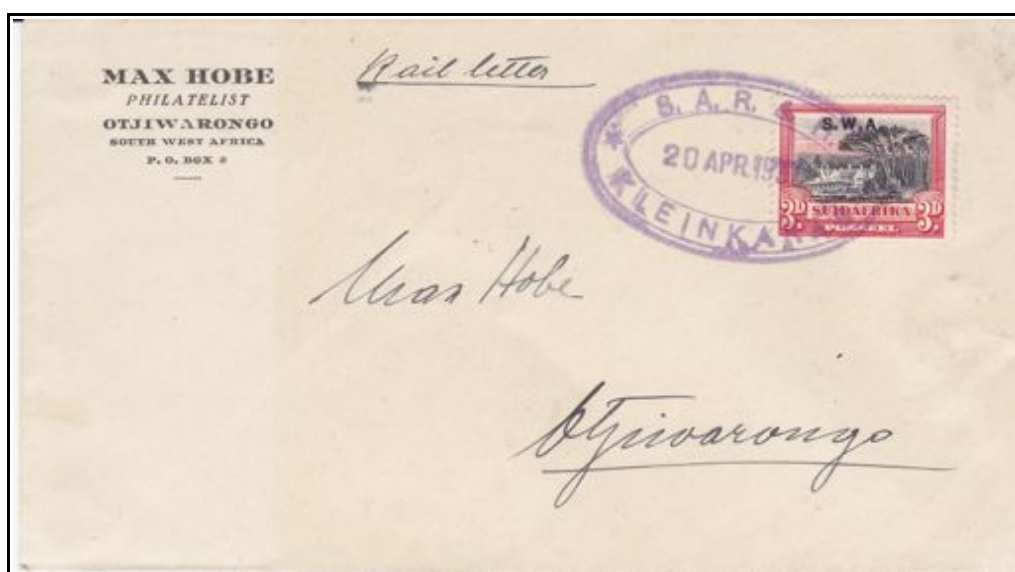 MAX HOBE
PHILATELIST
OTJIWARONGO
SOUTH WEST AFRICA
P. O. BOX 8
Rail letter
S. A. R.
20 APR.
KLEINKA
S.W.A.
3D SUIDAFRIKA 3D
POSSEEL
Max Hobe
Otjiwarongo